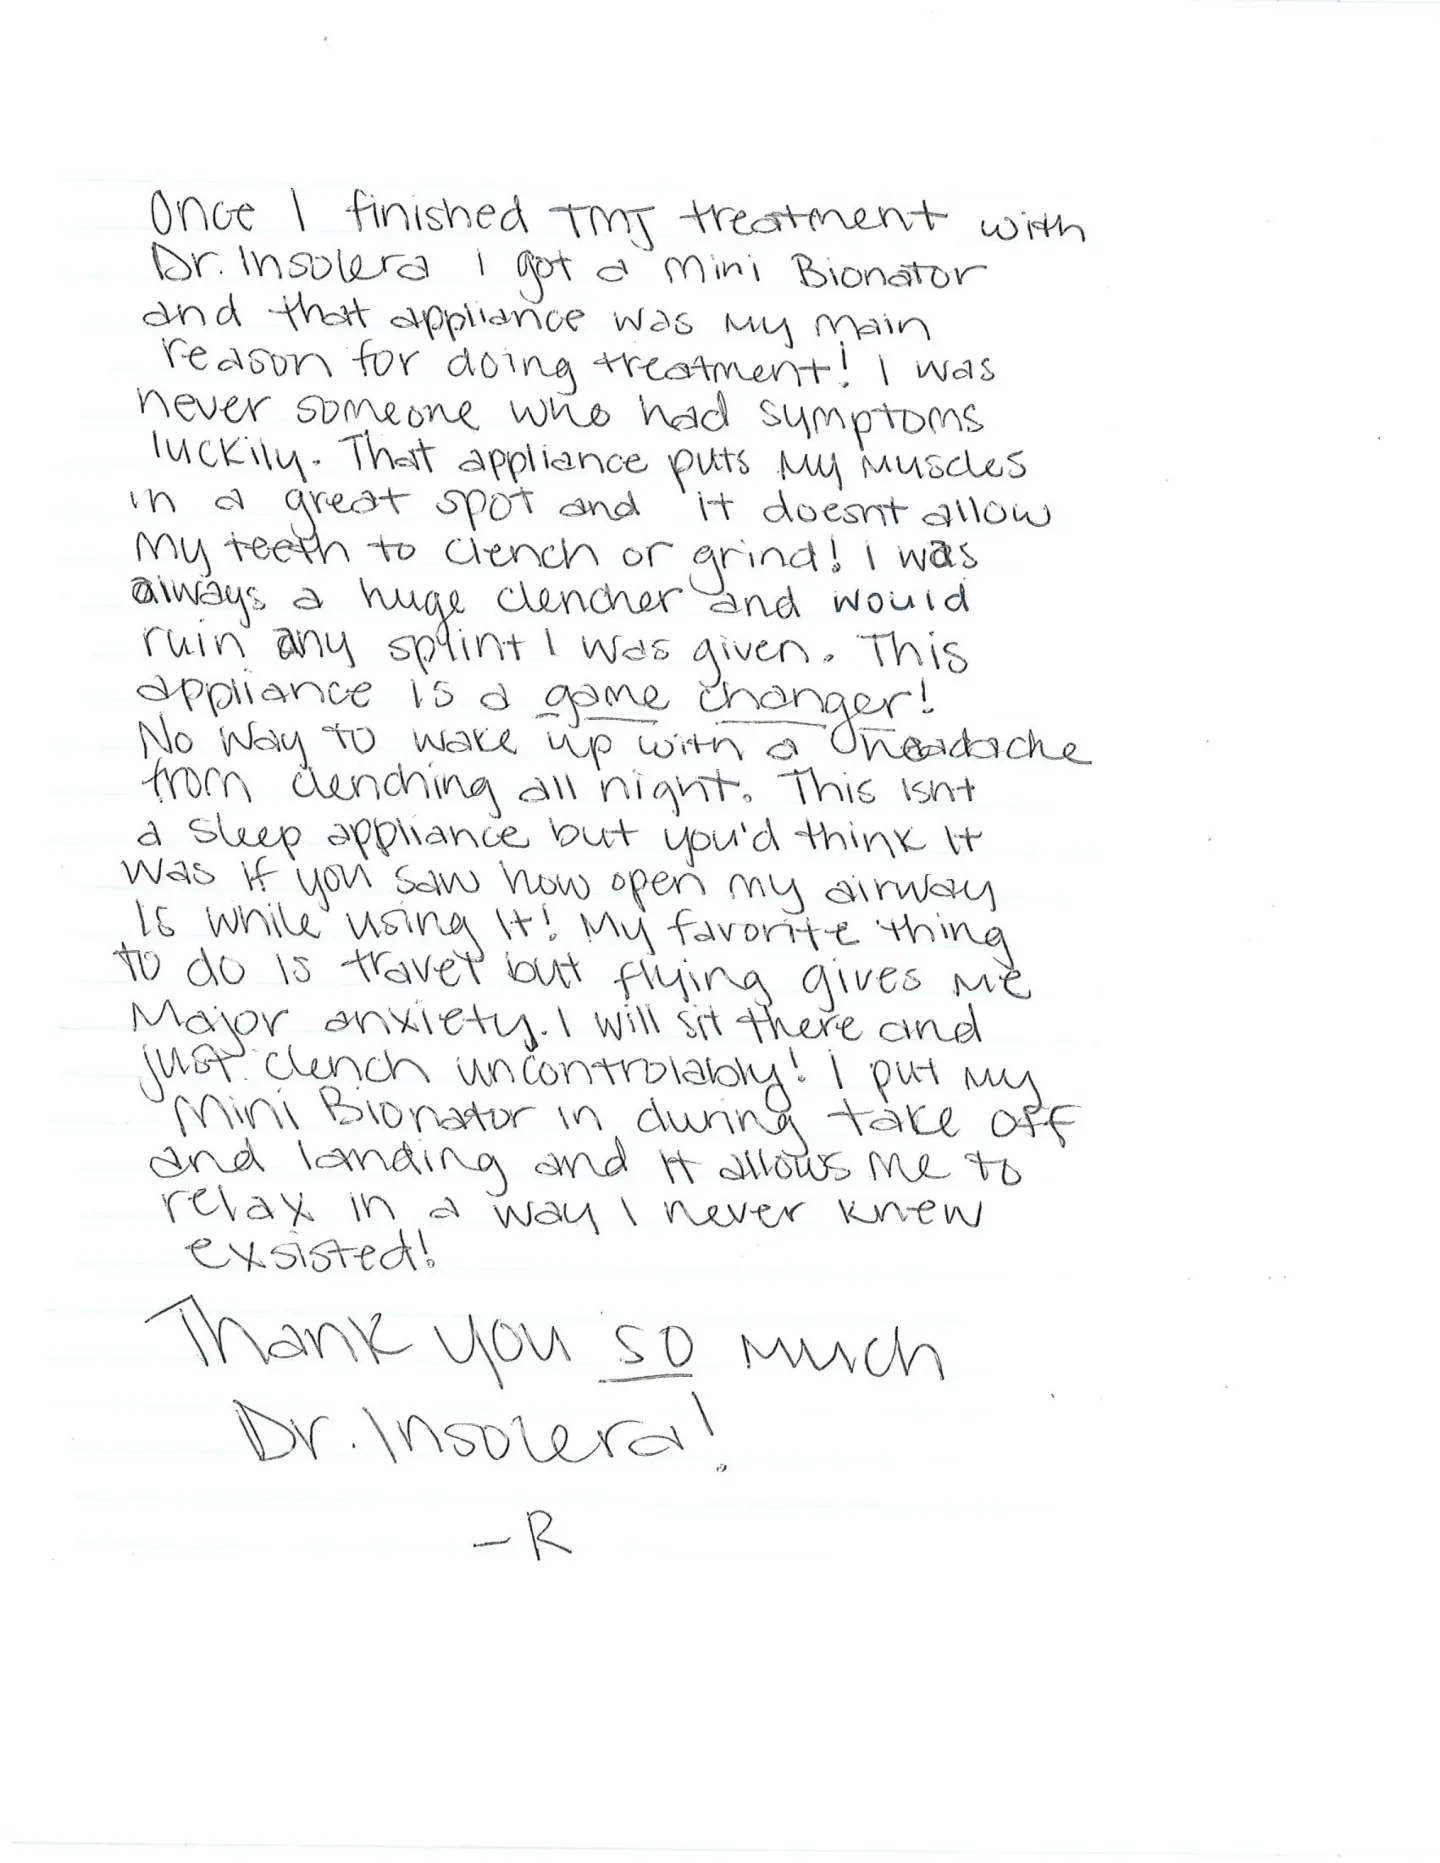 Once I finished TMJ treatment with
Dr. Insolera I got a Mini Bionator
and that appliance was my main
reason for doing treatment! I was
never someone who had symptoms
luckily. That appliance puts my muscles
in a great spot and it doesnt allow
my teeth to clench or grind! I was
always a huge clencher and would
ruin any splint I was given. This
appliance is a game changer!
No way to wake up with a headache
from clenching all night. This isnt
a sleep appliance but you'd think it
was if you saw how open my airway
is while using it! My favorite thing
to do is travel but flying gives me
Major anxiety. I will sit there and
just clench uncontrolably! I put my
Mini Bionator in during take off
and landing and it allows me to
relax in a way I never knew
exsisted!
Thank you so much
Dr. Insolera!
-R